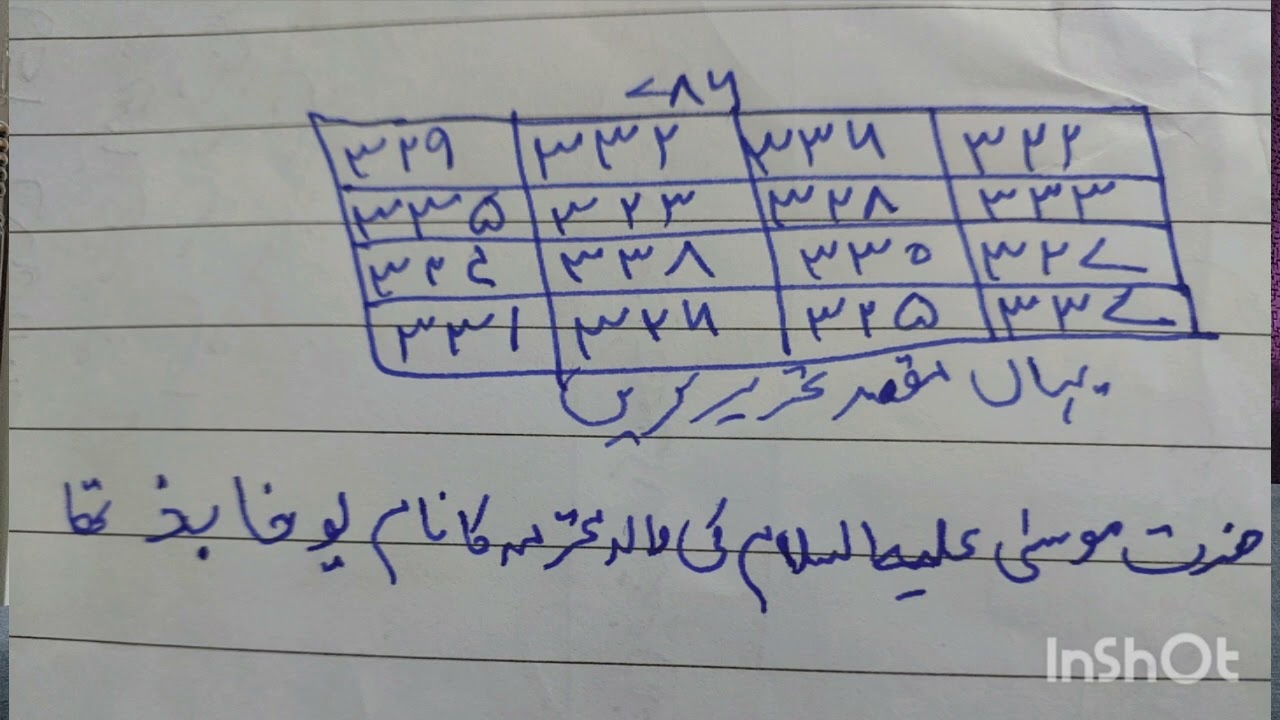 ۷۸۶
۳۲۲ ۳۳۶ ۳۳۲ ۳۲۹
۳۳۳ ۳۲۸ ۳۲۳ ۳۳۵
۳۲۷ ۳۳۰ ۳۳۸ ۳۲۴
۳۳۷ ۳۲۵ ۳۲۶ ۳۳۱
یہاں مقصد تحریر کریں
حضرت موسیٰ علیہ السلام کی والدہ محترمہ کا نام یوخا بذ تھا
InShOt